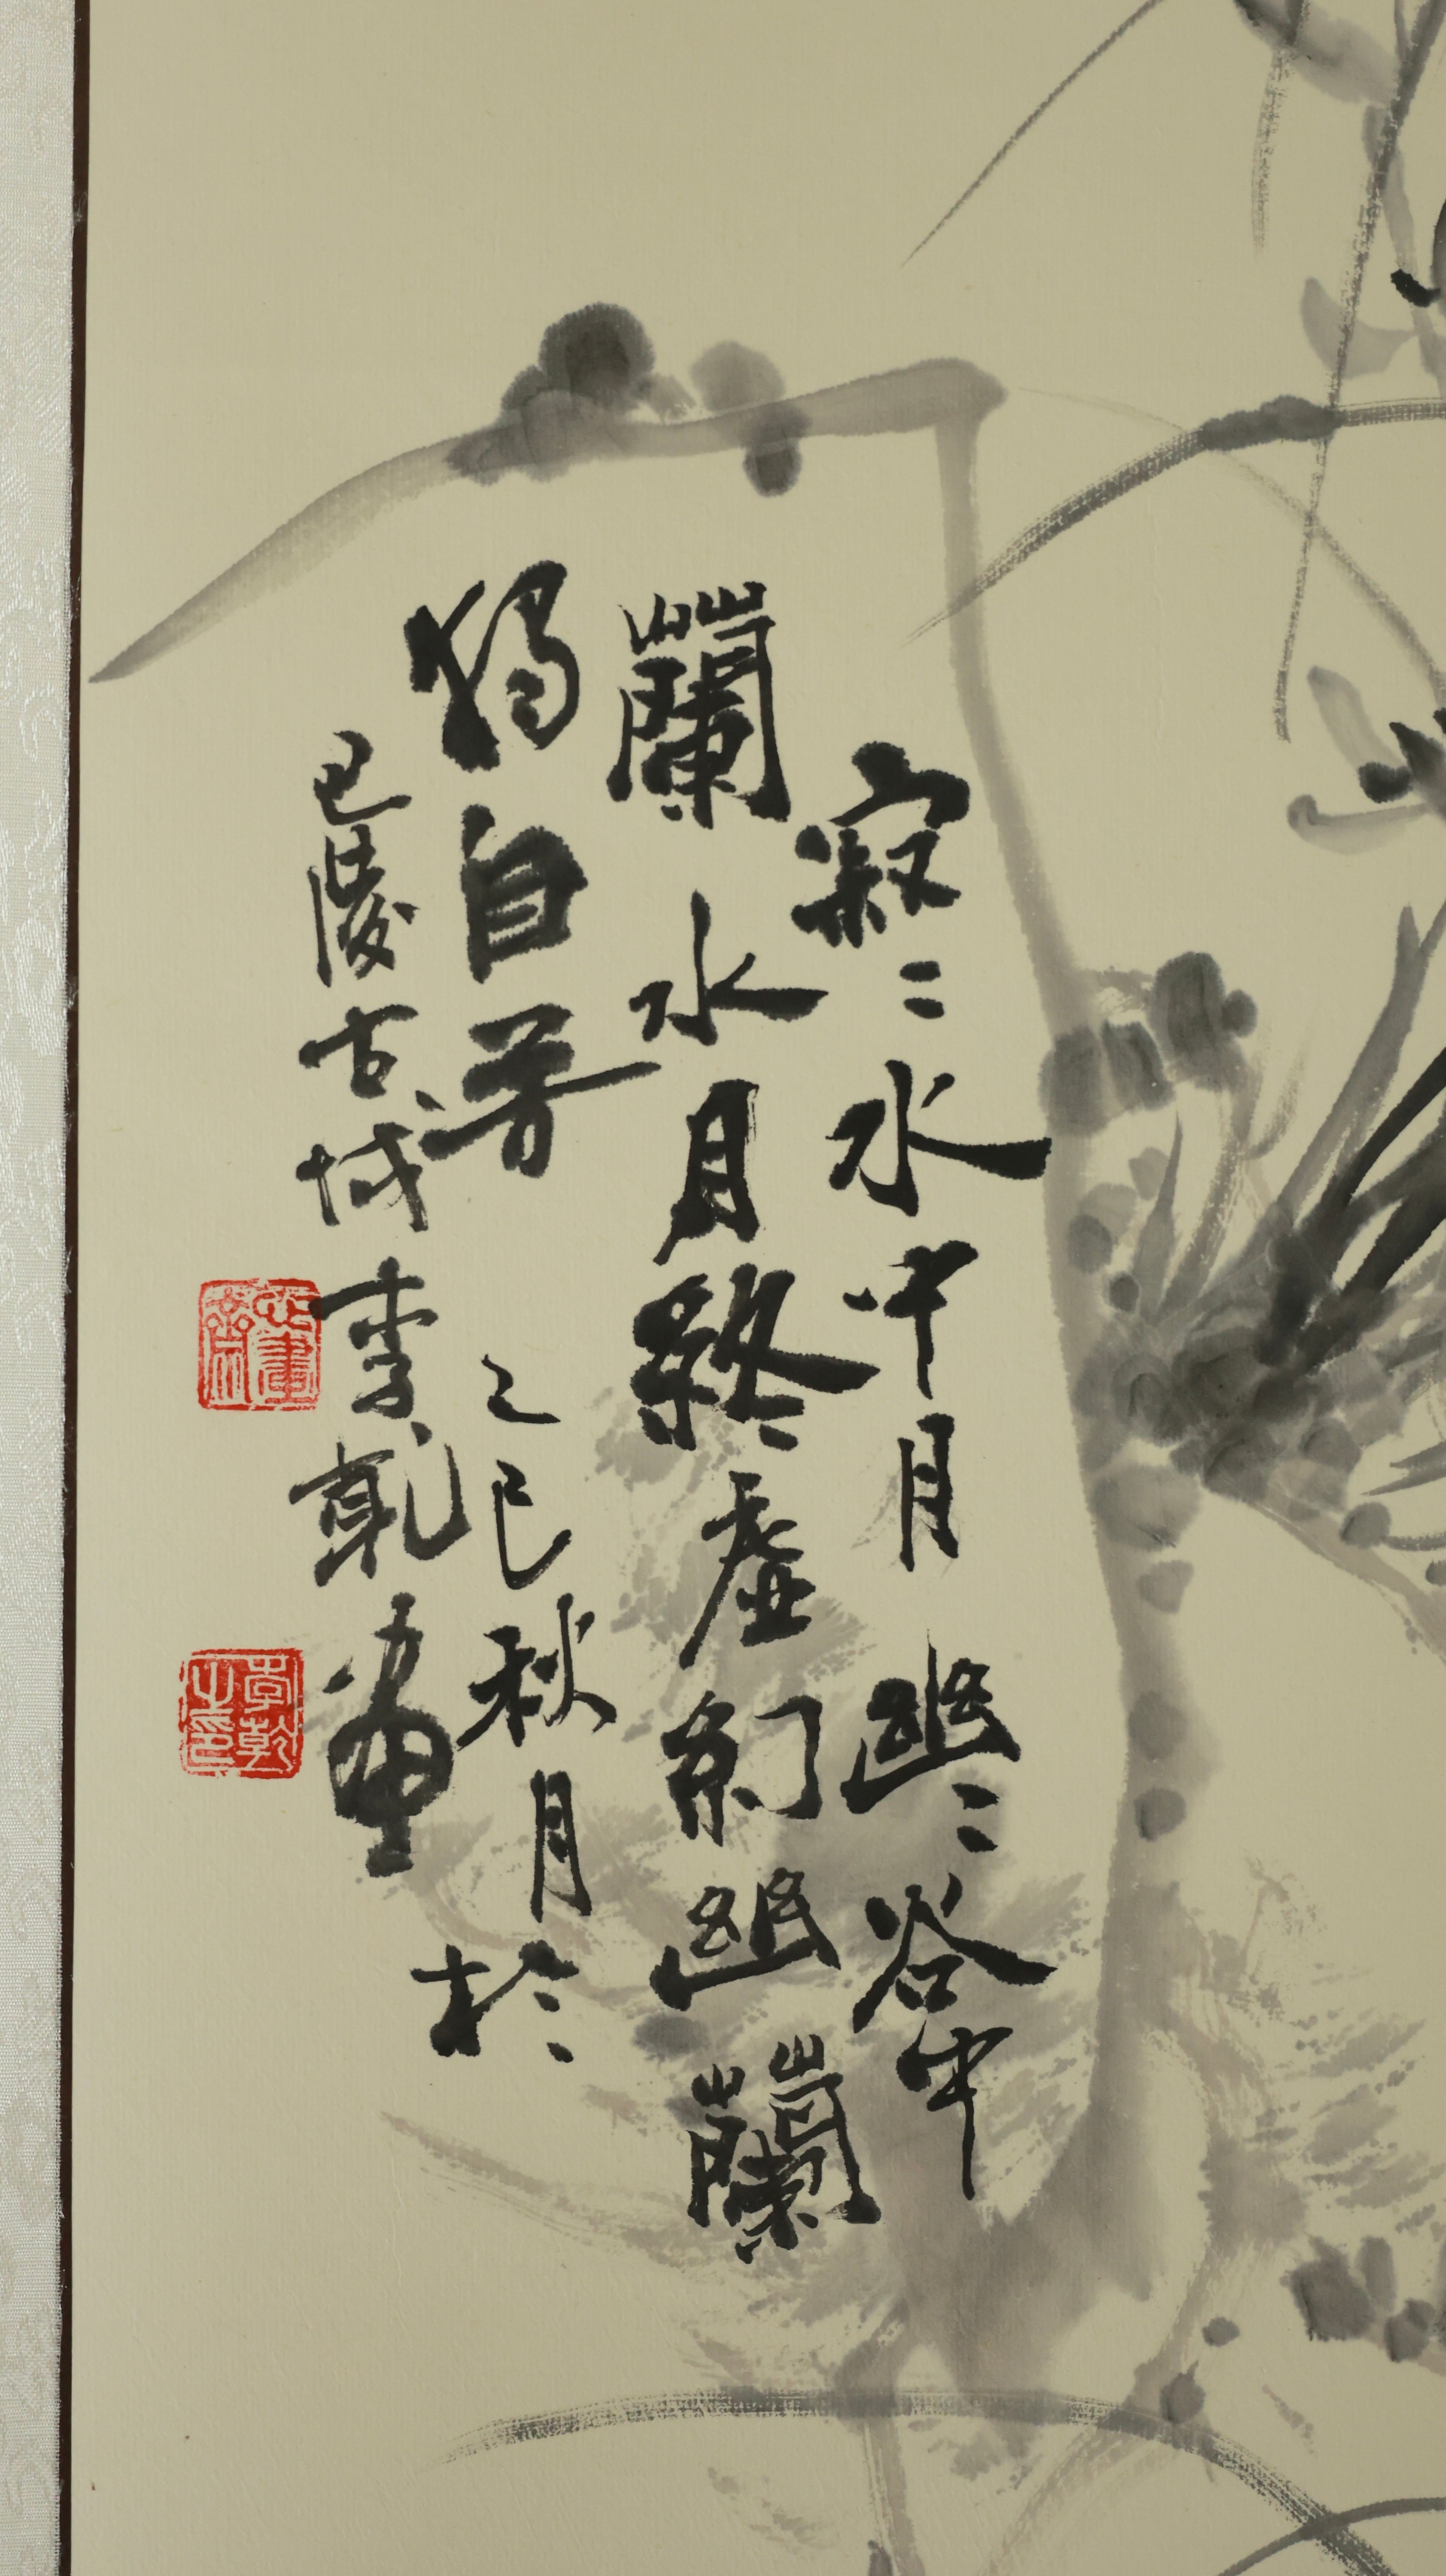 寂〻水中月幽〻谷中
蘭水月終虛幻幽蘭
獨自芳 乙巳秋月於
巴陵古城李乾畫
李乾之印